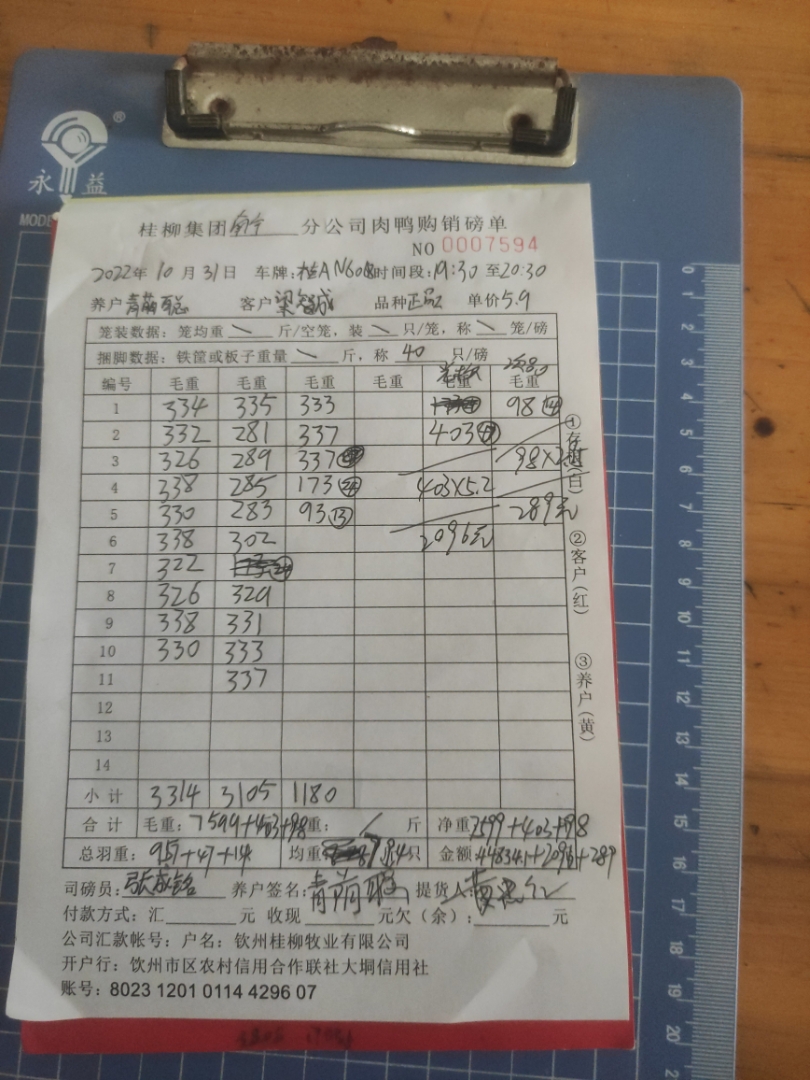 永益
®
MODE
桂柳集团 分公司肉鸭购销磅单
NO 0007594
2022年 10 月 31 日 车牌: 时间段: 19:30 至20:30
养户 客户 梁智成 品种正品 单价5.9
笼装数据: 笼均重 \ 斤/空笼, 装 \ 只/笼, 称 \ 笼/磅
捆脚数据: 铁筐或板子重量 \ 斤, 称 40 只/磅
编号 毛重 毛重 毛重 毛重 毛重 毛重
1 334 335 333 98 (14)
2 332 281 337 403 (47)
3 326 289 337
4 338 285 173 403×5.2
5 330 283 93 (13) 289元
6 338 302 2096元
7 322
8 326 329
9 338 331
10 330 333
11 337
12
13
14
小计 3314 3105 1180
合计 毛重: 7599+403+98 重: / 斤 净重 7599+403+98
总羽重: 957+47+14 均重 只 金额: 44834.1+2096+289
司磅员: 张成铭 养户签名: 提货人:
付款方式: 汇 元 收现 元欠(余): 元
公司汇款帐号: 户名: 钦州桂柳牧业有限公司
开户行: 钦州市区农村信用合作联社大垌信用社
账号: 8023 1201 0114 4296 07
①存根(白)
②客户(红)
③养户(黄)
0
1
2
3
4
5
6
7
8
9
10
11
12
13
14
15
16
17
18
19
20